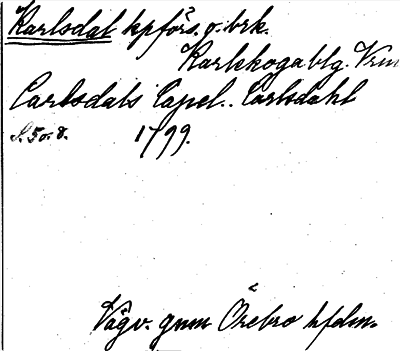 Karlsdal kpförs. o. brk.
Karlskoga blg. Vrm
Carlsdals Capel.. Carlsdahl
S. 5 o. 8. 1799.
Vägv. gnm Örebro hfdm.